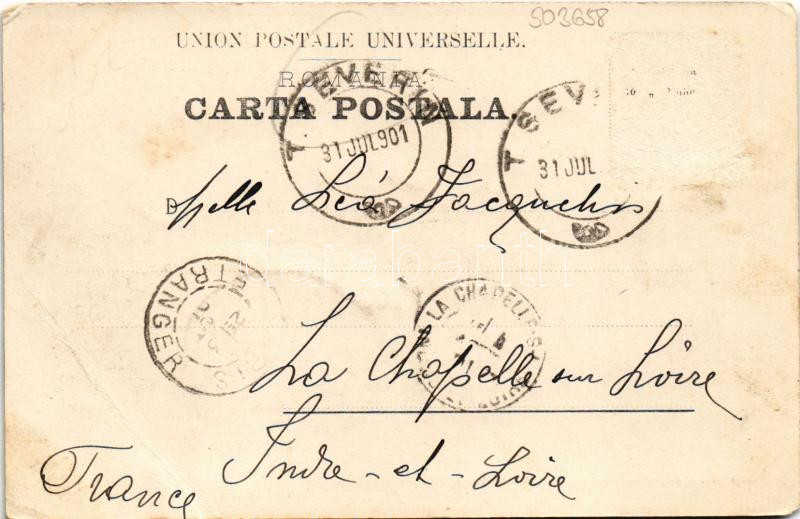 503658
UNION POSTALE UNIVERSELLE.
ROMANIA
CARTA POSTALA.
T. SEVERIN
31 JUL 901
T. SEVE
31 JUL
Mlle Léa Jacquelin
ETRANGER
LA CHAPELLE-S
La Chapelle sur Loire
Indre-et-Loire
France
darabanth